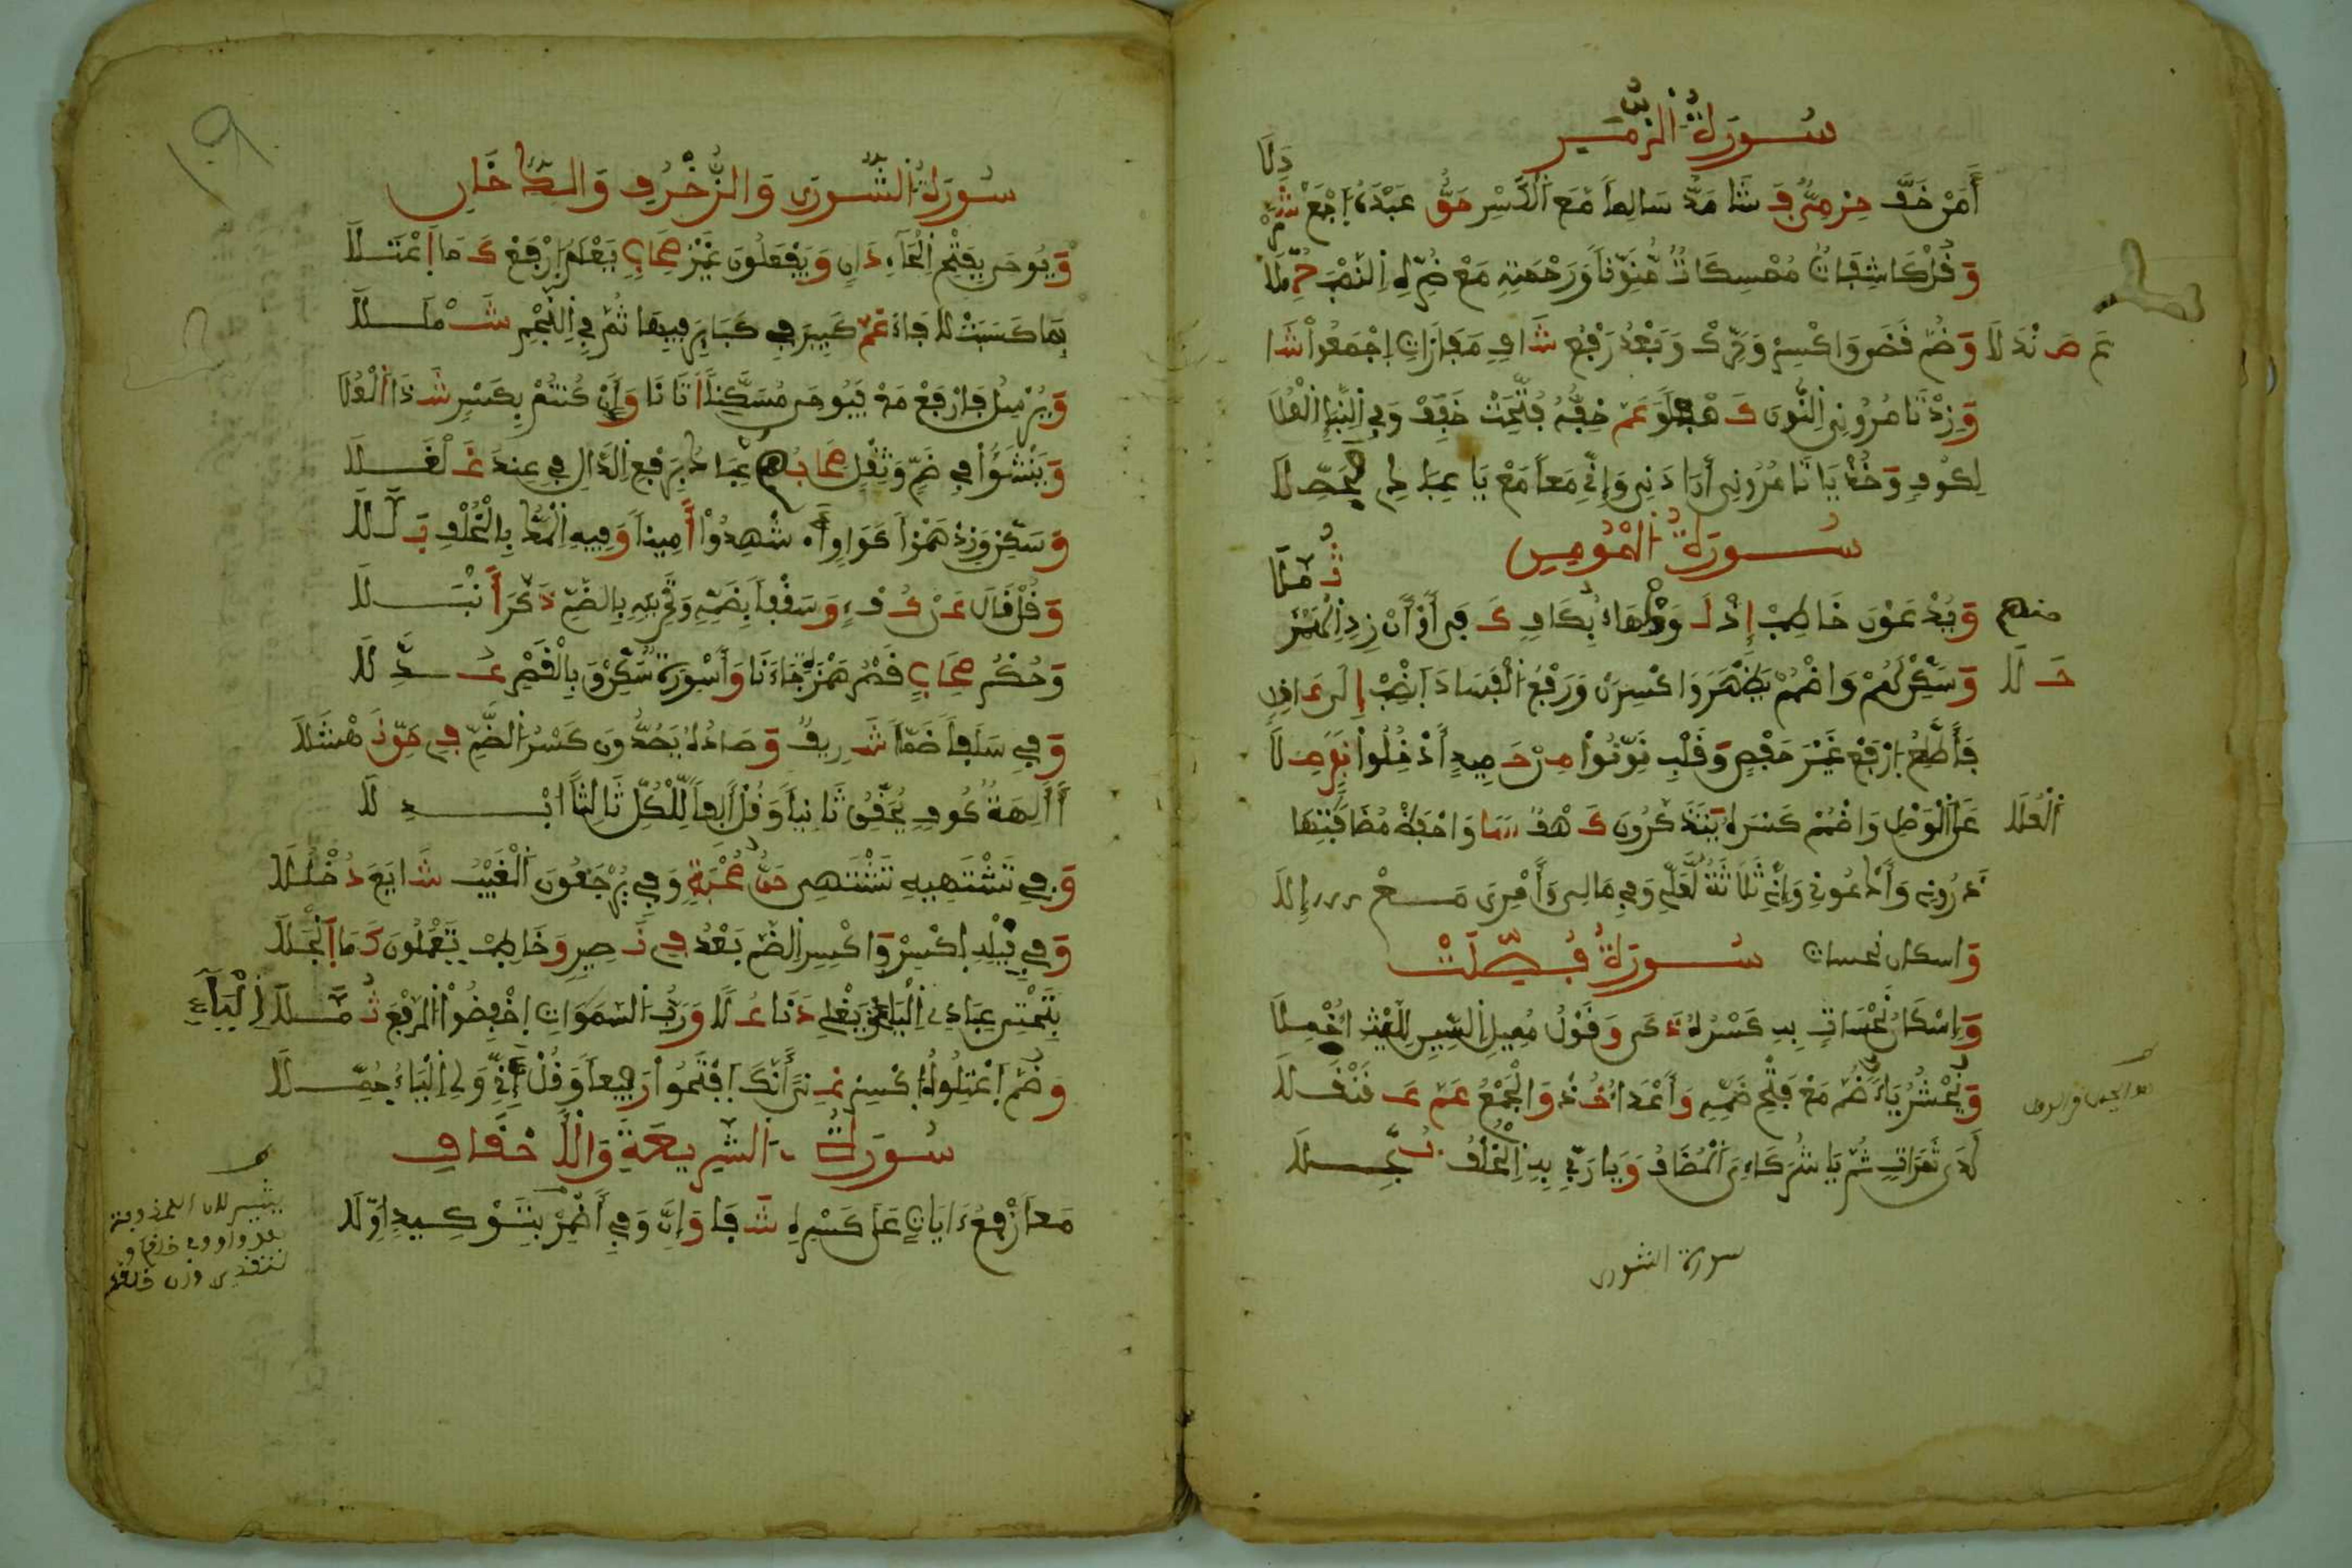 سُورَةُ الزُّمَر
أَمَنْ خَفَّ حِرْمِىٌّ فَشَا مَدَّ سَالِماً مَعَ الْكَسْرِ حَقٌّ عَبْدَهُ اِجْمَعْ شَمَرْ
دَلَا
وَقُلْ كَاشِفَاتٌ مُمْسِكَاتٌ مُنَوِّناً وَرَحْمَتِهِ مَعْ ضُرِّهِ اِلنَّصْبُ حُمِّلَا
وَضُمَّ قَضَى وَاكْسِرْ وَحَرِّكْ وَبَعْدُ رَفْعُ شَافٍ مَفَازَاتِ اِجْمَعُواْ شَا
عَ صَنْدَلَا
وَزِدْ تَامُرُونِى اِلنُّونَ كَهْفاً وَعَمَّ خِفُّهُ فُتِّحَتْ خَفِّفْ وَفِى اِلنَّبَإِ اِلْعُلَا
لِكُوفٍ وَخُذْ يَا تَامُرُونِى أَرَادَنِى وَإِنِّى مَعاً مَعْ يَا عِبَادِى فَحَصِّلَا
سُورَةُ الْمُومِن
وَيَدْعُونَ خَاطِبْ إِذْ لَوَى هَاءُ مِنْهُمْ
بِكَافٍ كَفَى أَوْ أَنْ زِدِ الْهَمْزَ ثُمَّلَا
وَسَكِّنْ لَهُمْ وَاضْمُمْ بِيَظْهَرَ وَاكْسِرَنْ وَرَفْعُ الْفَسَادَ اَنْصِبْ إِلَى عَاقِلٍ
حَلَا
فَأَطَّلِعُ اِرْفَعْ غَيْرَ حَفْصٍ وَقَلْبِ نَوِّنُواْ مِنْ حَمِيدٍ أَدْخِلُواْ نَفَرٌ صِلَا
عَلَى الْوَصْلِ وَاضْمُمْ كَسْرَهُ يَتَذَكَّرُونَ كَهْفٌ سَمَا وَاحْفَظْ مُضَافَاتِهَا
اَلْعُلَا
ذَرُونِى وَأَدْعُونِى وَإِنِّى ثَلَاثَةٌ لَعَلِّى وَفِى مَالِى وَأَمْرِى مَعْ إِلَا
سُورَةُ فُصِّلَتْ
وَاسكان نحسات
وَإِسْكَانُ نَحْسَاتٍ بِهِ كَسْرُهُ ذَكَى وَقَوْلُ مُمِيلِ اِلسِّينِ لِلَّيْثِ أُخْمِلَا
وَنَحْشُرُ يَاءٌ ضُمَّ مَعْ فَتْحِ ضَمِّهِ وَأَعْدَاءُ خُذْ وَالْجَمْعُ عَمَّ عَقَنْقَلَا
لَدَى ثَمَرَاتٍ ثُمَّ يَا شُرَكَاءِىَ اَلْمُضَافُ وَيَا رَبِّى بِهِ اِلْخُلْفُ بُجِّلَا
سورة الشورى
سُورَةُ الشُّورَى وَالزُّخْرُفِ وَالدُّخَانِ
وَيُوحَى بِفَتْحِ اِلْحَاءِ دَانٍ وَيَفْعَلُونَ غَيْرُ صِحَابٍ يَعْلَمُ اِرْفَعْ كَمَا اَعْتَلَا
بِمَا كَسَبَتْ لَا فَاءَ عَمَّ كَبِيرَ فِى كَبَايِرَ فِيهَا ثُمَّ فِى اِلنَّجْمِ شَمْلَلَا
وَيُرْسِلُ فَارْفَعْ مَعْ فَيُوحِى مُسَكِّناً أَتَانَا وَأَنْ كُنْتُمْ بِكَسْرٍ شَذَا اَلْعُلَا
وَيَنْشَؤُاْ فِى ضَمٍّ وَثِقْلٍ صِحَابُهُ عِبَادُ بِرَفْعِ اِلدَّالِ فِى عِنْدَ غَلْغَلَا
وَسَكِّنْ وَزِدْ هَمْزاً كَوَاوٍ أَ•شْهِدُواْ أَمِيناً وَفِيهِ اِلْمَدُّ بِالْخُلْفِ بَلَّلَا
وَقُلْ قَالَ عَنْ كُفْءٍ وَسَقْفاً بِضَمِّهِ وَتَحْرِيكِهِ بِالضَّمِّ ذَكَّرَ أَنْبَلَا
وَحُكْمُ صِحَابٍ قَصْرُ هَمْزَةِ جَاءَنَا وَأَسْوِرَةٌ سَكِّنْ وَبِالْقَصْرِ عُدِّلَا
وَفِى سَلَفاً ضَمَّا شَرِيفٌ وَصَادُهُ يَصُدُّونَ كَسْرُ الضَّمِّ فِى حَقِّ نَهْشَلَا
أَأَلِهَةٌ كُوفٍ يُحَقِّقُ ثَانِياً وَقُلْ أَلِفاً لِلْكُلِّ ثَالِثاً اَبْدِلَا
وَفِى تَشْتَهِيهِ تَشْتَهِى حَقُّ صُحْبَةٍ وَفِى يُرْجَعُونَ اَلْغَيْبُ شَايَعَ دُخْلُلَا
وَفِى قِيلِهِ اِكْسِرْ وَاكْسِرِ اِلضَّمَّ بَعْدُ فِى نَصِيرٍ وَخَاطِبْ يَعْلَمُونَ كَمَا اَنْجَلَا
بِتَحْتِى عِبَادِى اِلْيَاءُ وَيَغْلِى دَنَا عُلَا وَرَبُّ اَلسَّمَوَاتِ اِخْفِضُواْ اَلرَّفْعَ ثُمَّلَا اِلْيَاءِ
وَضُمَّ اِعْتِلُوهُ اِكْسِرْ غِنَى أَنَّكَ اِفْتَحُواْ رَبِيعاً وَقُلْ إِنِّى وَلِى اِلْيَاءُ حُمِّلَا
سُورَةُ الشَّرِيعَةِ وَالْأَحْقَافِ
مَعاً رَفْعُ ءَايَاتٍ عَلَى كَسْرِهِ شَفَا وَإِنَّ وَفِى أَضْمِرْ بِتَوْكِيدٍ اَوِّلَا